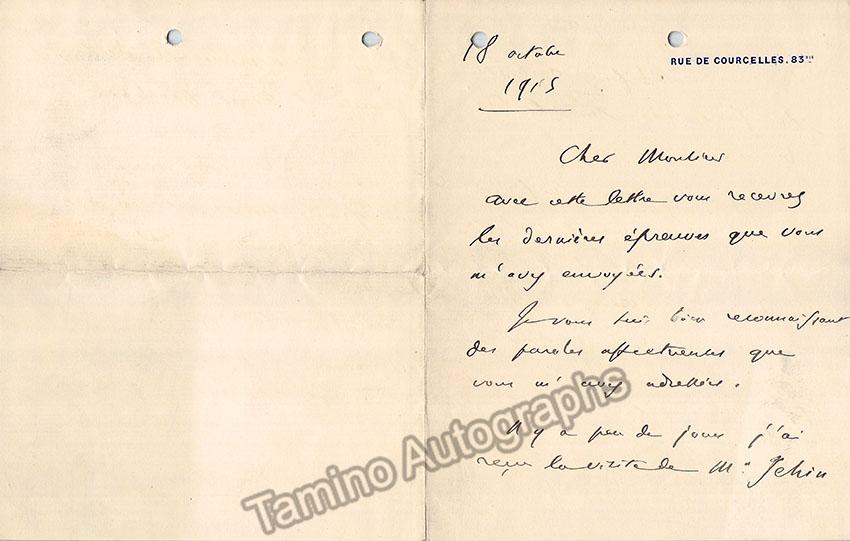 18 octobre
RUE DE COURCELLES. 83BIS
1915
Cher Monsieur
avec cette lettre vous recevrez
les dernières épreuves que vous
m'avez envoyées.
Je vous suis bien reconnaissant
des paroles affectueuses que
vous m'avez adressées.
Il y a peu de jours j'ai
reçu la visite de Mr. Jehin
Tamino Autographs